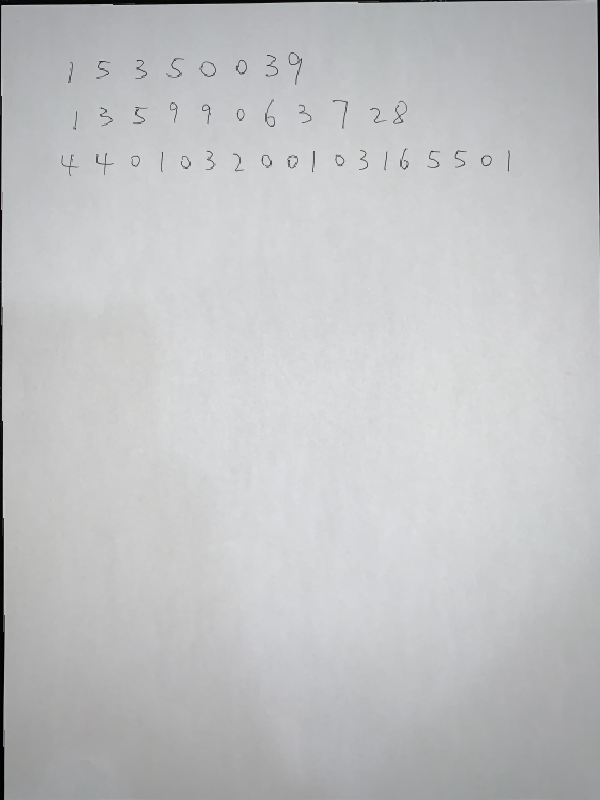 15350039
13599063728
440103200103165501